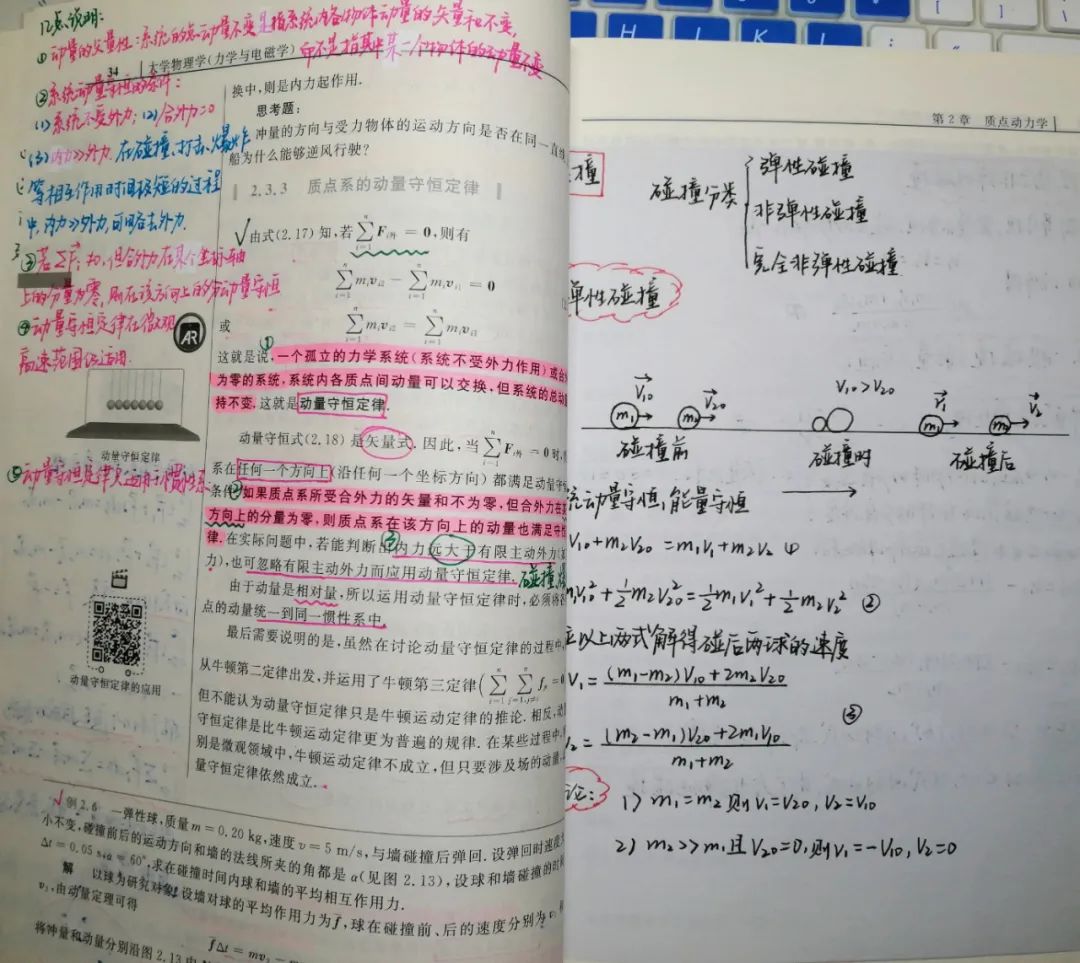 几点说明:
①动量的矢量性:系统的总动量不变是指系统内各物体动量的矢量和不变,
而不是指其中某一个物体的动量不变
34 大学物理学(力学与电磁学)
②系统动量守恒的条件:
(1)系统不受外力;(2)合外力=0
(3)内力>>外力.在碰撞、打击、爆炸
等相互作用时间极短的过程
中,内力>>外力,可略去外力.
③若ΣF≠0,但合外力在某个坐标轴
上的分量为零,则在该方向上的分动量守恒
④动量守恒定律在微观
高速范围仍适用.
AR
动量守恒定律
⑤动量守恒定律只适用于惯性系
动量守恒定律的应用
换中,则是内力起作用.
思考题:
冲量的方向与受力物体的运动方向是否在同一直线
船为什么能够逆风行驶?
2.3.3 质点系的动量守恒定律
√由式(2.17)知,若 ∑ᵢ₌₁ⁿ Fᵢ外 = 0,则有
∑ᵢ₌₁ⁿ mᵢvᵢ₂ − ∑ᵢ₌₁ⁿ mᵢvᵢ₁ = 0
或 ∑ᵢ₌₁ⁿ mᵢvᵢ₂ = ∑ᵢ₌₁ⁿ mᵢvᵢ₁
①
这就是说,一个孤立的力学系统(系统不受外力作用)或合
为零的系统,系统内各质点间动量可以交换,但系统的总动
持不变.这就是动量守恒定律.
动量守恒式(2.18)是矢量式.因此,当 ∑ᵢ₌₁ⁿ Fᵢ外 = 0时,
系在任何一个方向上(沿任何一个坐标方向)都满足动量守
条件②如果质点系所受合外力的矢量和不为零,但合外力在
方向上的分量为零,则质点系在该方向上的动量也满足守
律.在实际问题中,若能判断出③内力远大于有限主动外力(
力),也可忽略有限主动外力而应用动量守恒定律.碰撞 爆
由于动量是相对量,所以运用动量守恒定律时,必须将各
点的动量统一到同一惯性系中.
最后需要说明的是,虽然在讨论动量守恒定律的过程中,
从牛顿第二定律出发,并运用了牛顿第三定律(∑ᵢ₌₁ⁿ ∑ⱼ₌₁,ⱼ≠ᵢⁿ fⱼᵢ = 0
但不能认为动量守恒定律只是牛顿运动定律的推论.相反,动
守恒定律是比牛顿运动定律更为普遍的规律.在某些过程中,
别是微观领域中,牛顿运动定律不成立,但只要涉及场的动量
量守恒定律依然成立.
√例2.6 一弹性球,质量m=0.20 kg,速度v=5 m/s,与墙碰撞后弹回.设弹回时速度大
小不变,碰撞前后的运动方向和墙的法线所夹的角都是α(见图2.13),设球和墙碰撞的时
Δt=0.05 s,α=60°,求在碰撞时间内球和墙的平均相互作用力.
解 以球为研究对象.设墙对球的平均作用力为f̄,球在碰撞前、后的速度分别为v₁
v₂,由动量定理可得
f̄Δt = mv₂ −
将冲量和动量分别沿图2.13中
第2章 质点动力学
撞
碰撞分类
弹性碰撞
非弹性碰撞
完全非弹性碰撞
单性碰撞
V₁₀ V₂₀ V₁₀>V₂₀ V₁ V₂
m₁ m₂ m₁ m₂
碰撞前 碰撞时 碰撞后
动量守恒,能量守恒
V₁₀+m₂V₂₀=m₁V₁+m₂V₂ ①
m₁V₁₀²+½m₂V₂₀²=½m₁V₁²+½m₂V₂² ②
以上两式解得碰后两球的速度
V₁=((m₁-m₂)V₁₀+2m₂V₂₀)/(m₁+m₂)
③
V₂=((m₂-m₁)V₂₀+2m₁V₁₀)/(m₁+m₂)
论:
1) m₁=m₂则V₁=V₂₀,V₂=V₁₀
2) m₂>>m₁且V₂₀=0,则V₁=-V₁₀,V₂=0
H J K L